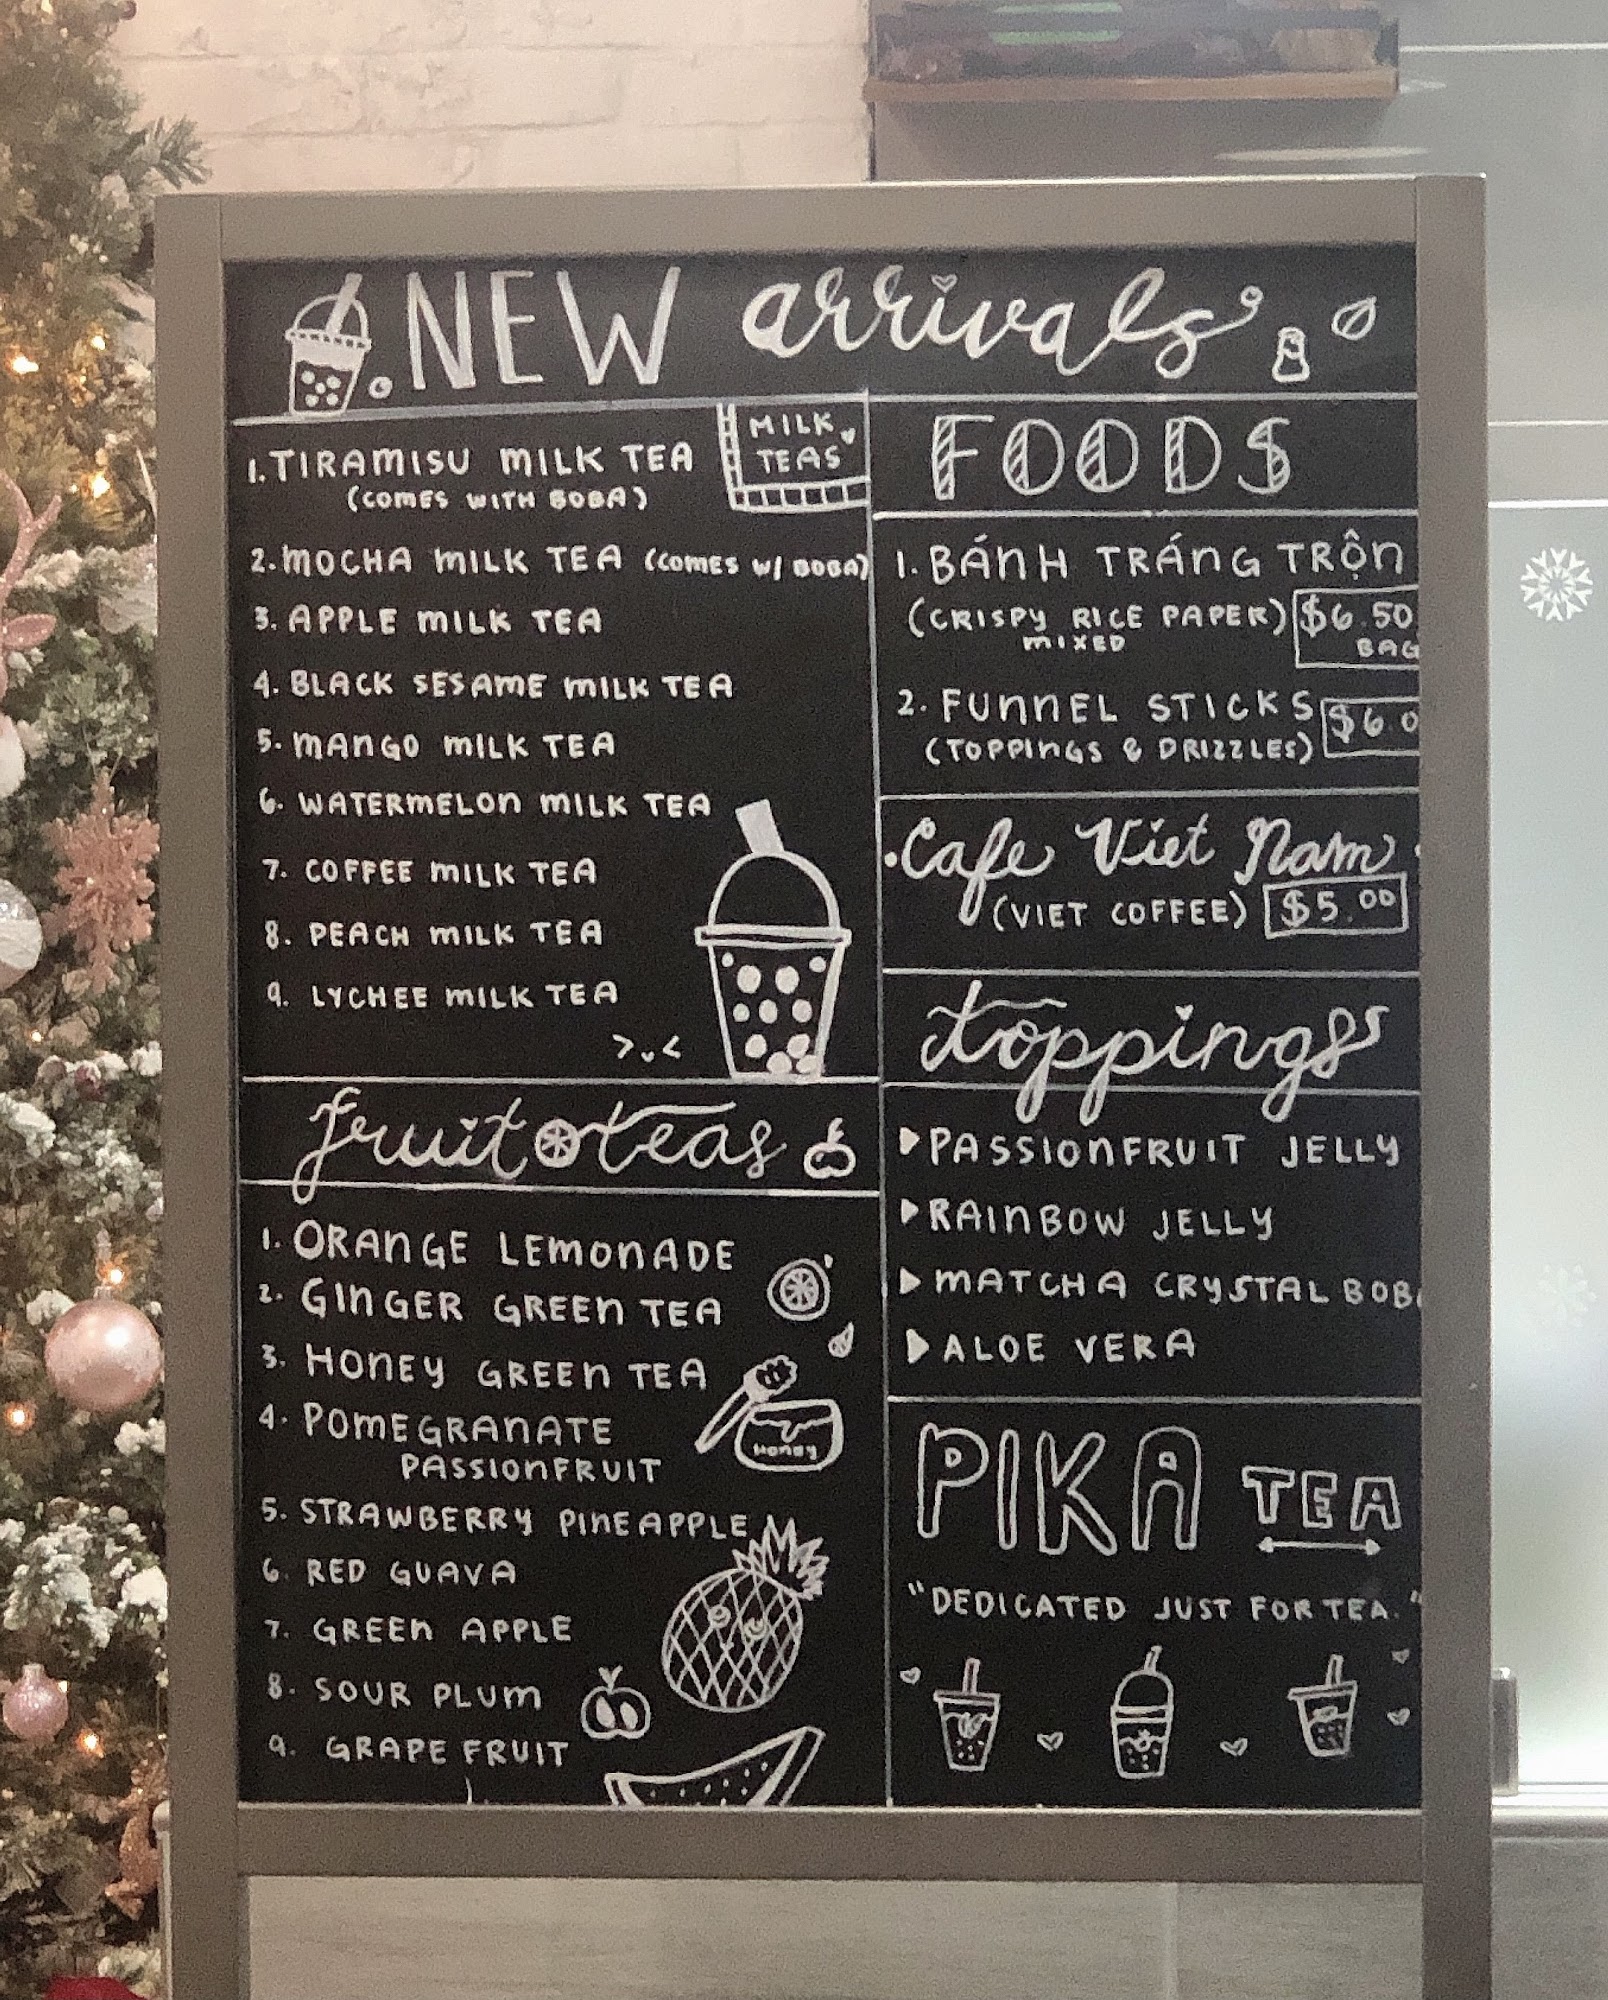 NEW arrivals
MILK TEAS
1. TIRAMISU MILK TEA
(COMES WITH BOBA)
2. MOCHA MILK TEA (COMES W/ BOBA)
3. APPLE MILK TEA
4. BLACK SESAME MILK TEA
5. MANGO MILK TEA
6. WATERMELON MILK TEA
7. COFFEE MILK TEA
8. PEACH MILK TEA
9. LYCHEE MILK TEA
fruit teas
1. ORANGE LEMONADE
2. GINGER GREEN TEA
3. HONEY GREEN TEA
Honey
4. POMEGRANATE
PASSIONFRUIT
5. STRAWBERRY PINEAPPLE
6. RED GUAVA
7. GREEN APPLE
8. SOUR PLUM
9. GRAPEFRUIT
FOODS
1. BÁNH TRÁNG TRỘN
(CRISPY RICE PAPER) $6.50
MIXED BAG
2. FUNNEL STICKS $6.0
(TOPPINGS & DRIZZLES)
Cafe Viet Nam
(VIET COFFEE) $5.00
toppings
PASSIONFRUIT JELLY
RAINBOW JELLY
MATCHA CRYSTAL BOB
ALOE VERA
PIKA TEA
"DEDICATED JUST FOR TEA."